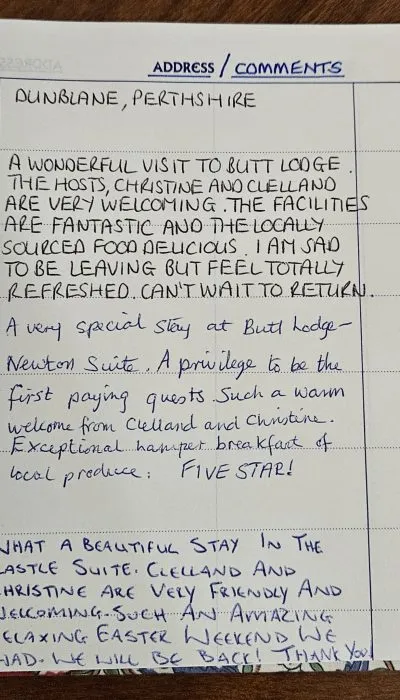 ADDRESS / COMMENTS
DUNBLANE, PERTHSHIRE
A WONDERFUL VISIT TO BUTT LODGE.
THE HOSTS, CHRISTINE AND CLELLAND
ARE VERY WELCOMING. THE FACILITIES
ARE FANTASTIC AND THE LOCALLY
SOURCED FOOD DELICIOUS. I AM SAD
TO BE LEAVING BUT FEEL TOTALLY
REFRESHED. CAN'T WAIT TO RETURN.
A very special stay at Butt Lodge -
Newton Suite. A privilege to be the
first paying guests. Such a warm
welcome from Clelland and Christine.
Exceptional hamper breakfast of
local produce. FIVE STAR!
WHAT A BEAUTIFUL STAY IN THE
CASTLE SUITE. CLELLAND AND
CHRISTINE ARE VERY FRIENDLY AND
WELCOMING. SUCH AN AMAZING
RELAXING EASTER WEEKEND WE
HAD. WE WILL BE BACK! THANK YOU!